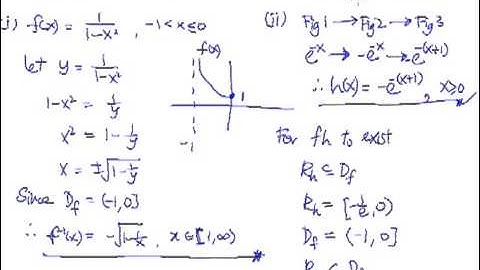 (i) f(x) = 1/(1-x²), -1 < x ≤ 0
let y = 1/(1-x²)
1-x² = 1/y
x² = 1 - 1/y
x = ±√(1 - 1/y)
Since D_f = (-1, 0]
∴ f⁻¹(x) = -√(1 - 1/x), x ∈ [1, ∞)
f(x)
1
-1
(ii) Fig 1 → Fig 2 → Fig 3
e^-x → -e^-x → -e^-(x+1)
∴ h(x) = -e^-(x+1), x ≥ 0
For fh to exist
R_h ⊆ D_f
R_h = [-1/e, 0)
D_f = (-1, 0]